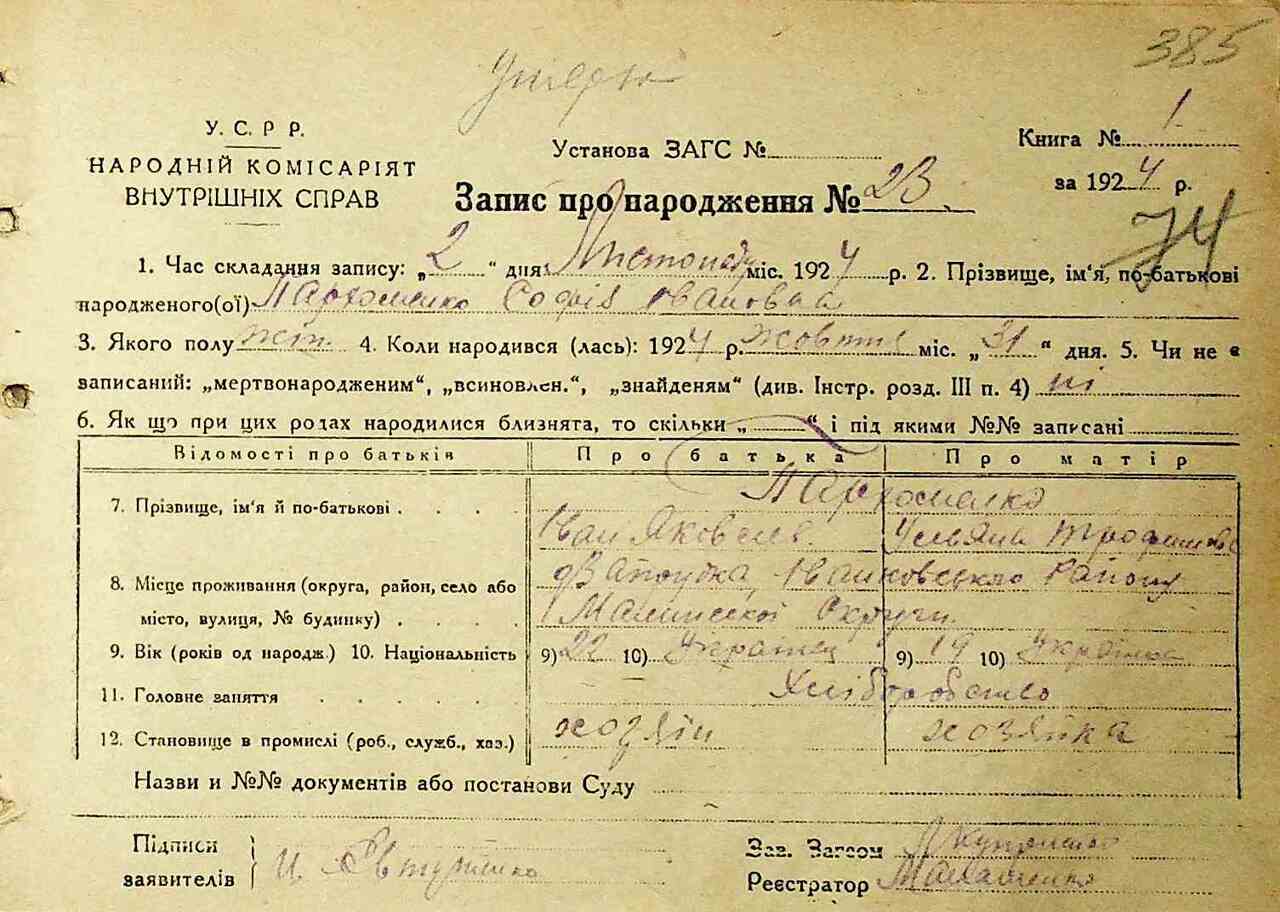 385
У. С. Р Р.
НАРОДНІЙ КОМІСАРІЯТ
ВНУТРІШНІХ СПРАВ
Установа ЗАГС №
Книга № 1
за 1924 р.
Запис про народження № 23
74
1. Час складання запису: „ 2 “ дня: Листопаду міс. 1924 р. 2. Прізвище, ім‘я, по-батькові
народженого(ої) Пархоменко Софія Івановна
3. Якого полу жін. 4. Коли народився (лась): 1924 р. жовтня міс. „ 31 “ дня. 5. Чи не є
записаний: „мертвонародженим“, „всиновлен.“, „знайденям“ (див. Інстр. розд. III п. 4) ні
6. Як що при цих родах народилися близнята, то скільки „ “ і під якими №№ записані
Відомості про батьків Про батька Про матір
7. Прізвище, ім‘я й по-батькові . . . . Пархоменко
Іван Яковель. Ульяна Трофимівна
8. Місце проживання (округа, район, село або
місто, вулиця, № будинку) . . . .
Іванковського Району
Малинської Округи.
9. Вік (років од народж.) 10. Національність 9) 22 10) Українец 9) 19 10) Українка
11. Головне заняття . . . . . . Хліборобство
12. Становище в промислі (роб., служб., хаз.) хозяїн хозяйка
Назви и №№ документів або постанови Суду
Підписи
заявителів
Євтушенко
Зав. Загсом
Реєстратор